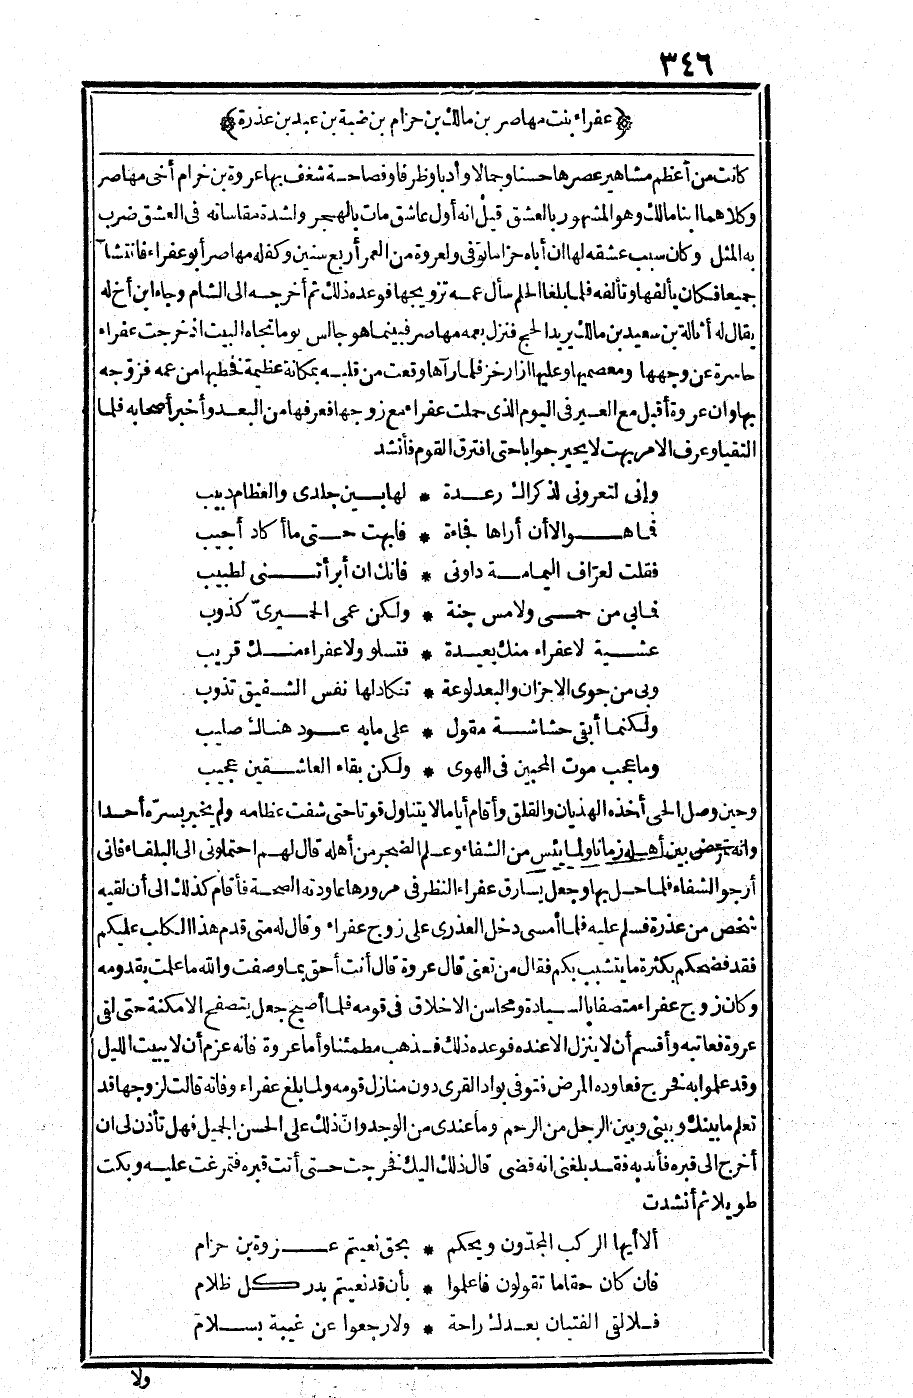 ٣٤٦
﴿عفراء بنت مهاصر بن مالك بن حزام بن ضبة بن عبد بن عذرة﴾
كانت من أعظم مشاهير عصرها حسنا وجمالا وأدبا وظرفا وفصاحة شغف بها عروة بن خرام أخى مهاصر
وكلاهما ابنا مالك وهو المشهور بالعشق قيل انه أول عاشق مات بالهجر ولشدة مقاساته فى العشق ضرب
به المثل وكان سبب عشقه لها ان أباه حزاما توفى ولعروة من العمر أربع سنين وكفله مهاصر أبو عفراء فانتشآ
جميعا فكان يألفها وتألفه فلما بلغا الحلم سأل عمه تزويجها فوعده ذلك ثم أخرجه الى الشام وجاء ابن أخ له
يقال له أثالة بن سعيد بن مالك يريد الحج فنزل بعمه مهاصر فبينما هو جالس يوما تجاه البيت اذ خرجت عفراء
حاسرة عن وجهها ومعصميها وعليها ازار خز فلما رآها وقعت من قلبه بمكانة عظيمة فخطبها من عمه فزوجه
بها وان عروة أقبل مع العير فى اليوم الذى حملت عفراء مع زوجها فعرفها من البعد وأخبر أصحابه فلما
التقيا وعرف الامر بهت لا يحير جوابا حتى افترق القوم فأنشد
وانى لتعرونى لذكراك رعدة * لها بين جلدى والعظام دبيب
فما هو الا أن أراها فجاءة * فابهت حتى ما أكاد أجيب
فقلت لعرّاف اليمامة داونى * فانك ان أبرأتنى لطبيب
فمابى من حمى ولا مس جنة * ولكن عمى الحميرىّ كذوب
عشية لا عفراء منك بعيدة * فتسلو ولا عفراء منك قريب
وبى من جوى الاحزان والبعد لوعة * تكاد لها نفس الشفيق تذوب
ولكنما أبقى حشاشة مقول * على ما به عود هناك صليب
وما عجب موت المحبين فى الهوى * ولكن بقاء العاشقين عجيب
وحين وصل الحى أخذه الهذيان والقلق وأقام أياما لا يتناول قوتا حتى شفت عظامه ولم يخبر بسرّه أحدا
وانه تمرض بين أهله زمانا ولما يئس من الشفاء وعلم الضجر من أهله قال لهم احتملونى الى البلقاء فانى
أرجو الشفاء فلما حل بها وجعل يسارق عفراء النظر فى مرورها عاودته الصحة فأقام كذلك الى أن لقيه
شخص من عذرة فسلم عليه فلما أمسى دخل العذرى على زوج عفراء وقال له متى قدم هذا الكلب عليكم
فقد فضحكم بكثرة ما يتشبب بكم فقال من تعنى قال عروة قال أنت أحق بما وصفت والله ما علمت بقدومه
وكان زوج عفراء متصفا بالسيادة ومحاسن الاخلاق فى قومه فلما أصبح جعل يتصفح الامكنة حتى لقى
عروة فعاتبه وأقسم أن لا ينزل الا عنده فوعده ذلك فذهب مطمئنا وأما عروة فانه عزم أن لا يبيت الليل
وقد علموا به فخرج فعاوده المرض فتوفى بواد القرى دون منازل قومه ولما بلغ عفراء وفاته قالت لزوجها قد
تعلم ما بينك وبينى وبين الرجل من الرحم وما عندى من الوجد وانّ ذلك على الحسن الجميل فهل تأذن لى ان
أخرج الى قبره فأندبه فقد بلغنى انه قضى قال ذلك اليك فخرجت حتى أتت قبره فتمرغت عليه وبكت
طويلا ثم أنشدت
ألا أيها الركب المجدّون ويحكم * بحق نعيتم عروة بن حزام
فان كان حقا ما تقولون فاعلموا * بأن قد نعيتم بدر كل ظلام
فلا لقى الفتيان بعدك راحة * ولا رجعوا عن غيبة بسلام
ولا